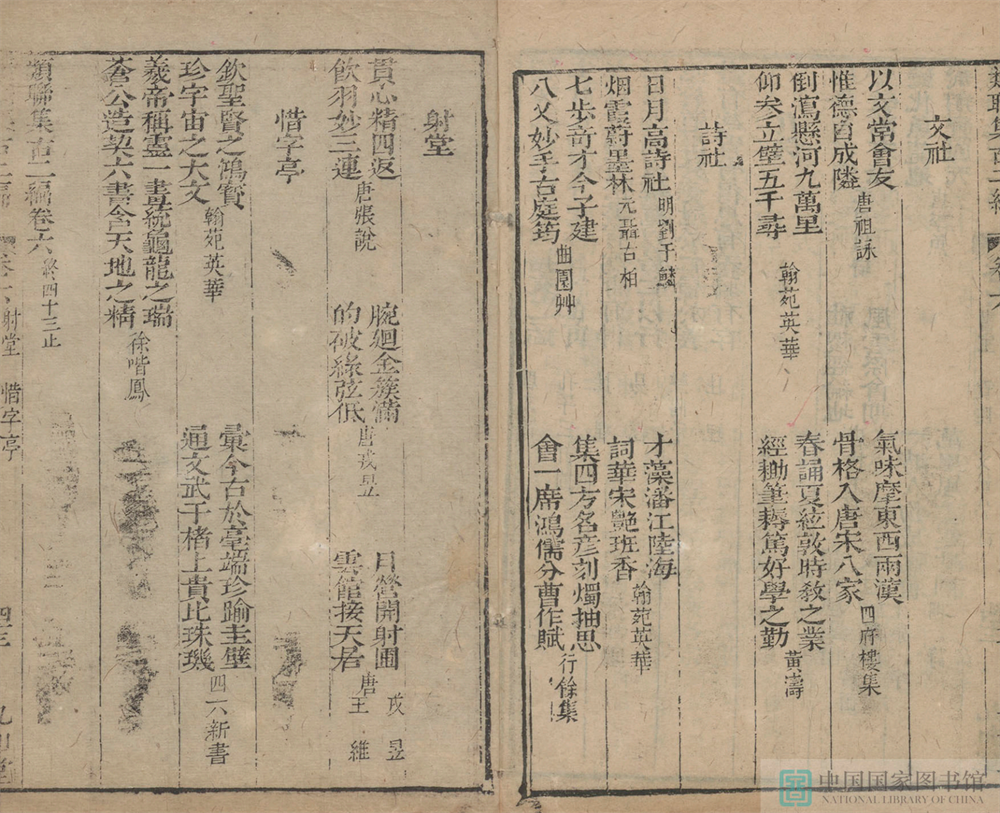 文社
以文常會友
惟德自成隣 唐祖詠
氣味摩東西兩漢
骨格入唐宋八家 四府樓集
倒瀉懸河九萬里
仰參立壁五千尋 翰苑英華
春誦夏絃敦時敎之業
經鋤筆耨篤好學之勤 黃濤
詩社
日月高詩社 明劉于鱗
烟霞蔚墨林 元聶古柏
才藻潘江陸海
詞華宋艷班香 翰苑英華
七步奇才今子建
八乂妙手古庭筠 曲園艸
集四方名彥刻燭抽思
會一席鴻儒分曹作賦 行餘集
射堂
貫心精四返
飲羽妙三連 唐張說
腕廻金簇滿
的破綠弦低 唐戎昱
月營開射圃 戎昱
雲館接天居 唐王維
惜字亭
欽聖賢之鴻寳
珍宇宙之大文 翰苑英華
彙今古於毫端珍踰圭璧
通文武于楮上貴比珠璣 四六新書
羲帝稱靈一畫統龜龍之瑞
蒼公造契六書含天地之精 徐喈鳳
類聯集古二編卷六 終四十三止
射堂 惜字亭
四三
中国国家图书馆
NATIONAL LIBRARY OF CHINA